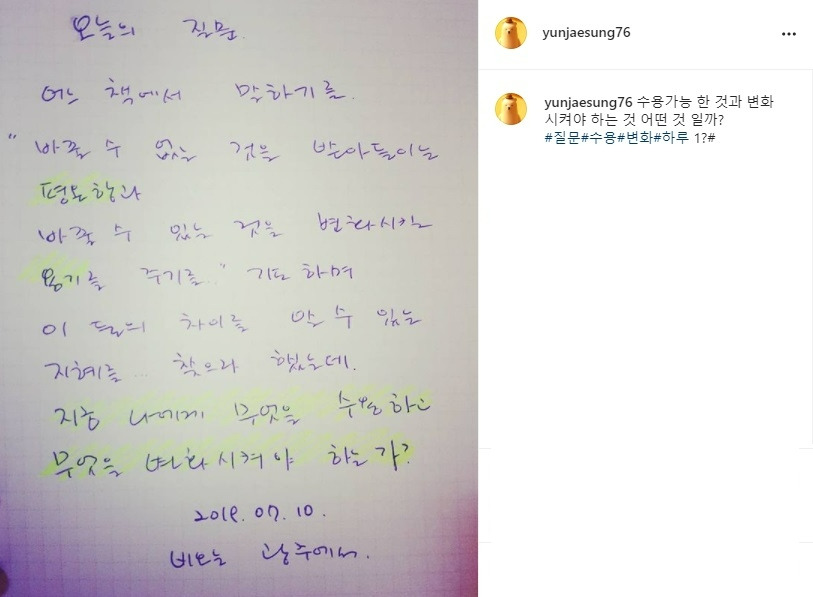 오늘의 질문.
어느 책에서 말하기를.
"바꿀 수 없는 것을 받아들이는
평온함과
바꿀 수 있는 것을 변화시키는
용기를 주기를.." 기도하며
이 둘의 차이를 알 수 있는
지혜를... 찾으라 했는데.
지금 나에게 무엇을 수용하고
무엇을 변화시켜야 하는가?
2019. 07. 10.
비오는 광주에서.
yunjaesung76
yunjaesung76 수용가능 한 것과 변화
시켜야 하는 것 어떤 것 일까?
#질문#수용#변화#하루 1?#